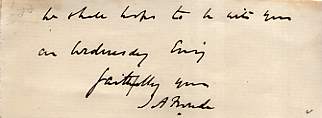 we shall hope to be with you
on Wednesday Evg
faithfully yours
J A Froude